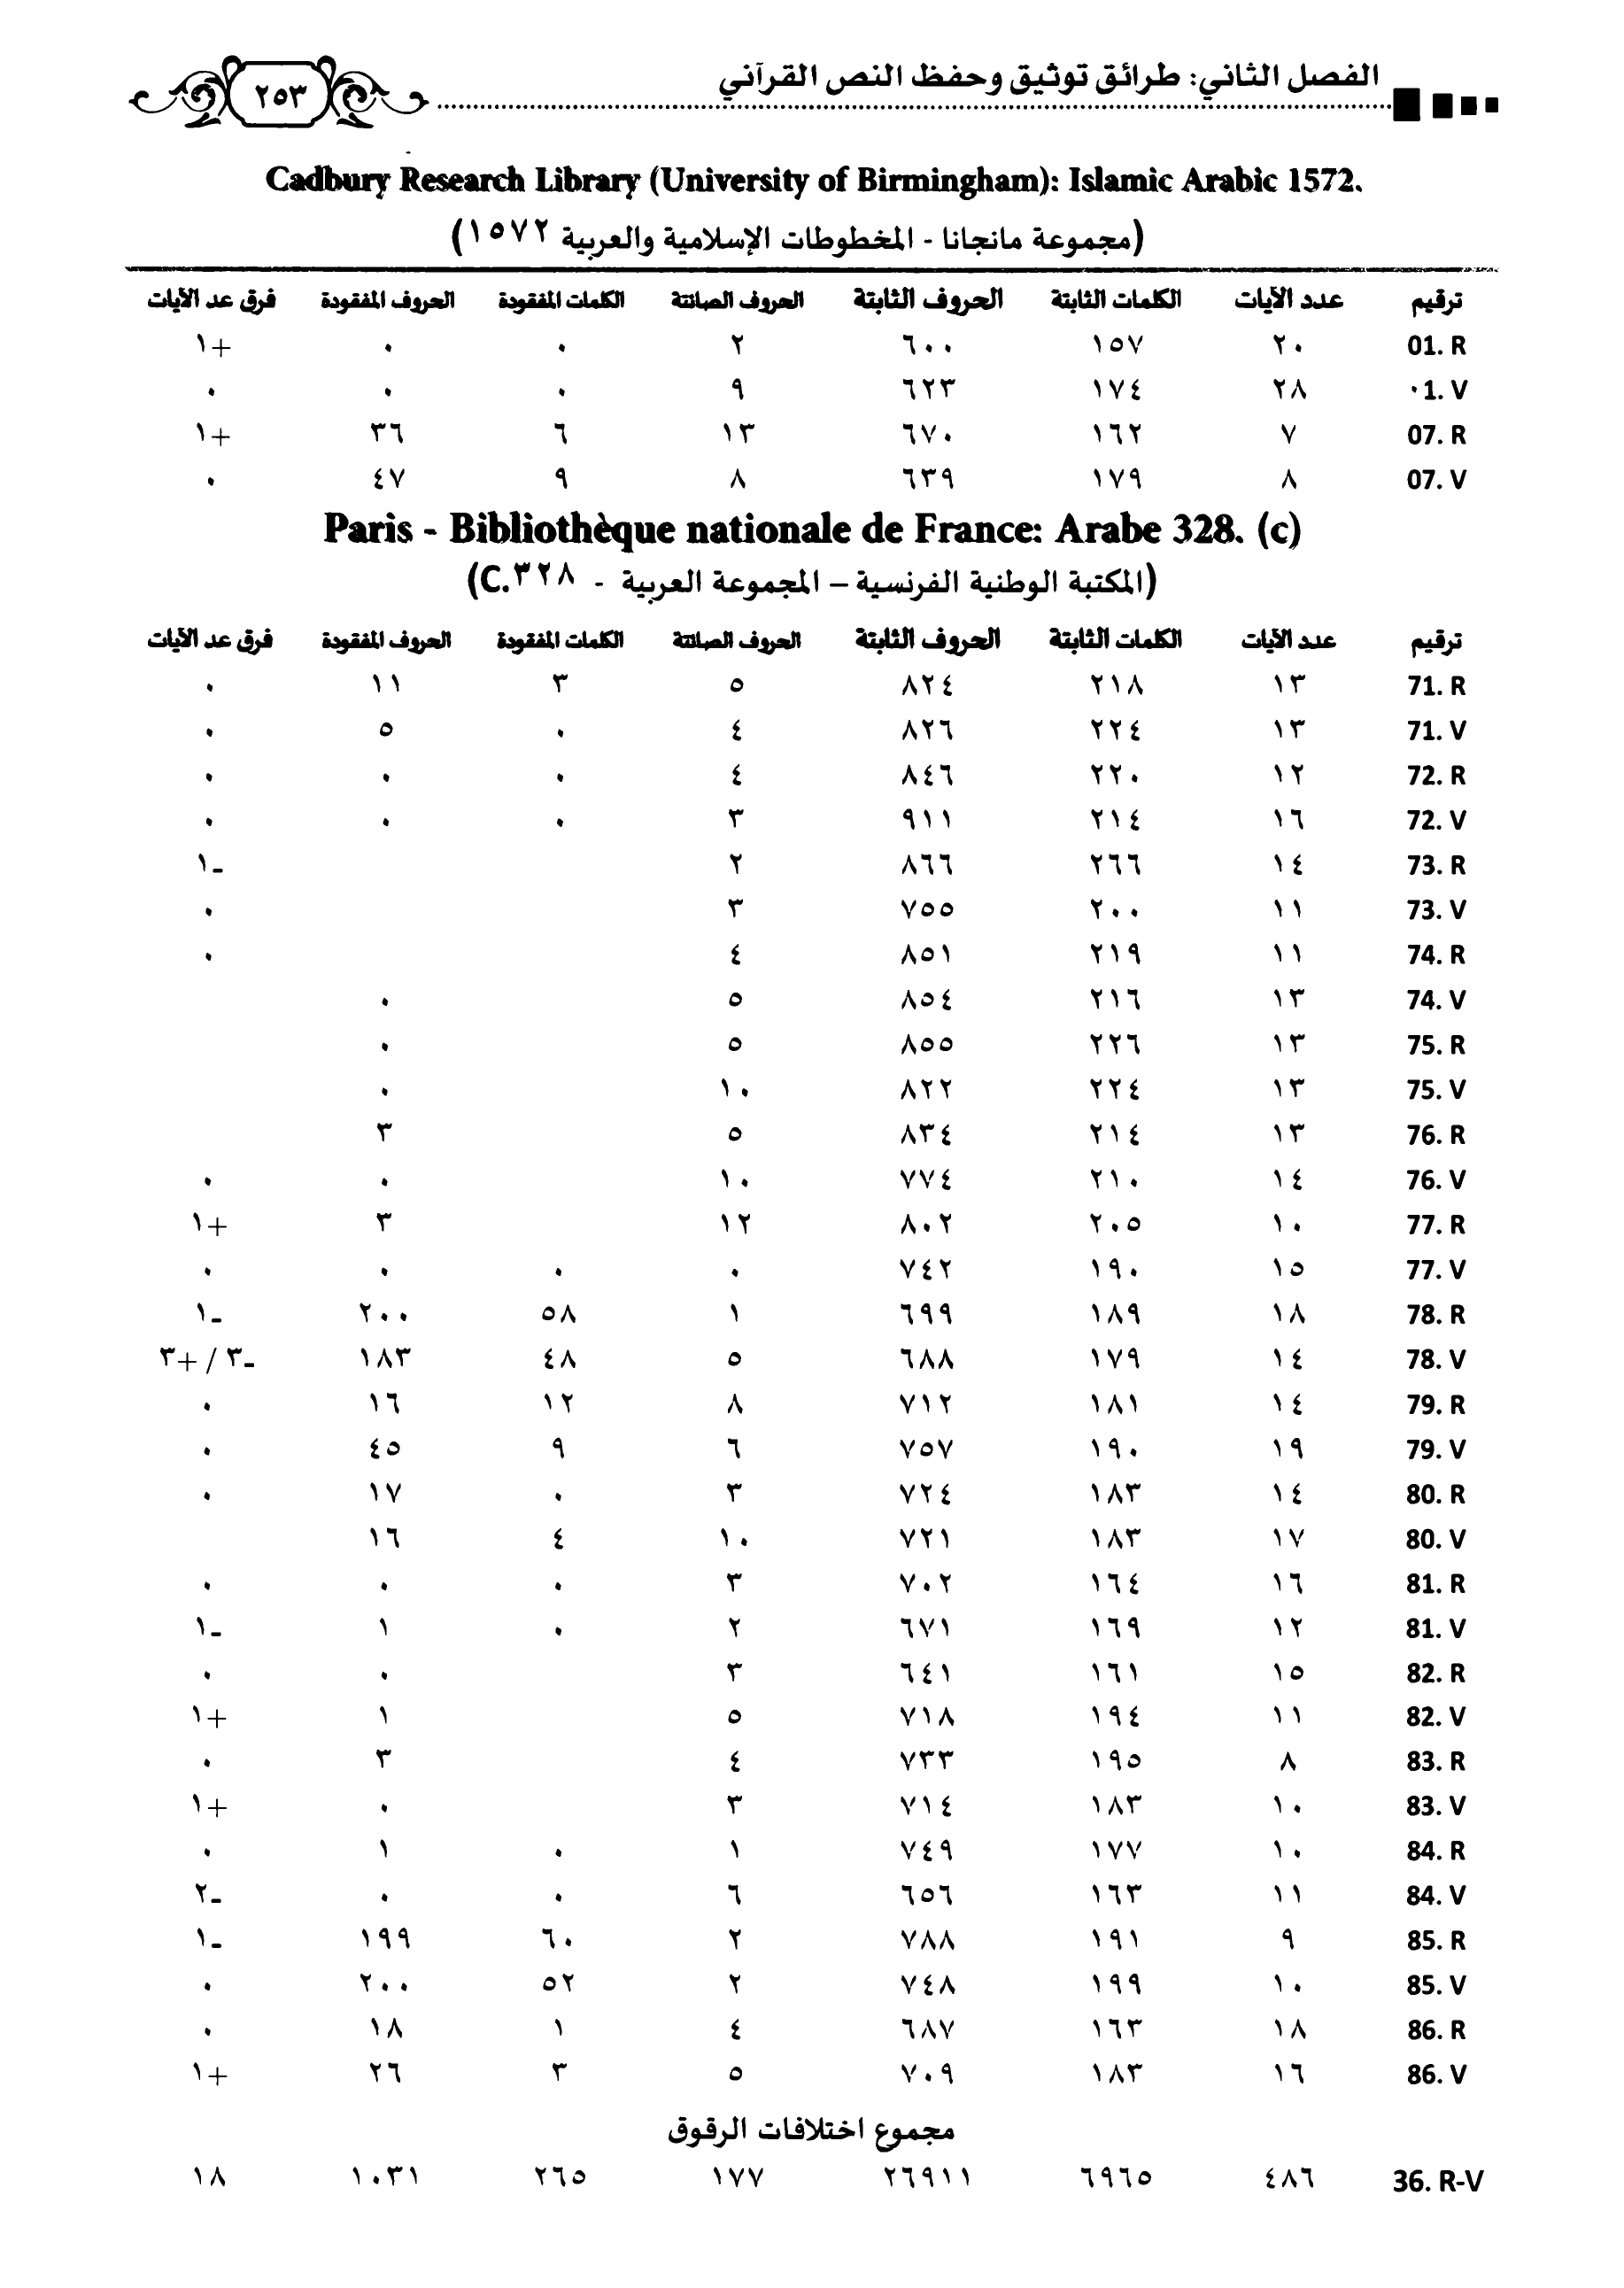 الفصل الثاني: طرائق توثيق وحفظ النص القرآني
٢٥٣
Cadbury Research Library (University of Birmingham): Islamic Arabic 1572.
(مجموعة مانجانا - المخطوطات الإسلامية والعربية ١٥٧٢)
ترقيم عدد الآيات الكلمات الثابتة الحروف الثابتة الحروف الصائتة الكلمات المفقودة الحروف المفقودة فرق عد الآيات
01. R ٢٠ ١٥٧ ٦٠٠ ٢ ٠ ٠ +١
٠1. V ٢٨ ١٧٤ ٦٢٣ ٩ ٠ ٠ ٠
07. R ٧ ١٦٢ ٦٧٠ ١٣ ٦ ٣٦ +١
07. V ٨ ١٧٩ ٦٣٩ ٨ ٩ ٤٧ ٠
Paris - Bibliothèque nationale de France: Arabe 328. (c)
(المكتبة الوطنية الفرنسية – المجموعة العربية - C.٣٢٨)
ترقيم عدد الآيات الكلمات الثابتة الحروف الثابتة الحروف الصائتة الكلمات المفقودة الحروف المفقودة فرق عد الآيات
71. R ١٣ ٢١٨ ٨٢٤ ٥ ٣ ١١ ٠
71. V ١٣ ٢٢٤ ٨٢٦ ٤ ٠ ٥ ٠
72. R ١٢ ٢٢٠ ٨٤٦ ٤ ٠ ٠ ٠
72. V ١٦ ٢١٤ ٩١١ ٣ ٠ ٠ ٠
73. R ١٤ ٢٦٦ ٨٦٦ ٢ -١
73. V ١١ ٢٠٠ ٧٥٥ ٣ ٠
74. R ١١ ٢١٩ ٨٥١ ٤ ٠
74. V ١٣ ٢١٦ ٨٥٤ ٥ ٠
75. R ١٣ ٢٢٦ ٨٥٥ ٥ ٠
75. V ١٣ ٢٢٤ ٨٢٢ ١٠ ٠
76. R ١٣ ٢١٤ ٨٣٤ ٥ ٣
76. V ١٤ ٢١٠ ٧٧٤ ١٠ ٠ ٠
77. R ١٠ ٢٠٥ ٨٠٢ ١٢ ٣ +١
77. V ١٥ ١٩٠ ٧٤٢ ٠ ٠ ٠ ٠
78. R ١٨ ١٨٩ ٦٩٩ ١ ٥٨ ٢٠٠ -١
78. V ١٤ ١٧٩ ٦٨٨ ٥ ٤٨ ١٨٣ -٣ / +٣
79. R ١٤ ١٨١ ٧١٢ ٨ ١٢ ١٦ ٠
79. V ١٩ ١٩٠ ٧٥٧ ٦ ٩ ٤٥ ٠
80. R ١٤ ١٨٣ ٧٢٤ ٣ ٠ ١٧ ٠
80. V ١٧ ١٨٣ ٧٢١ ١٠ ٤ ١٦
81. R ١٦ ١٦٤ ٧٠٢ ٣ ٠ ٠ ٠
81. V ١٢ ١٦٩ ٦٧١ ٢ ٠ ١ -١
82. R ١٥ ١٦١ ٦٤١ ٣ ٠ ٠
82. V ١١ ١٩٤ ٧١٨ ٥ ١ +١
83. R ٨ ١٩٥ ٧٣٣ ٤ ٣ ٠
83. V ١٠ ١٨٣ ٧١٤ ٣ ٠ +١
84. R ١٠ ١٧٧ ٧٤٩ ١ ٠ ١ ٠
84. V ١١ ١٦٣ ٦٥٦ ٦ ٠ ٠ -٢
85. R ٩ ١٩١ ٧٨٨ ٢ ٦٠ ١٩٩ -١
85. V ١٠ ١٩٩ ٧٤٨ ٢ ٥٢ ٢٠٠ ٠
86. R ١٨ ١٦٣ ٦٨٧ ٤ ١ ١٨ ٠
86. V ١٦ ١٨٣ ٧٠٩ ٥ ٣ ٢٦ +١
مجموع اختلافات الرقوق
36. R-V ٤٨٦ ٦٩٦٥ ٢٦٩١١ ١٧٧ ٢٦٥ ١٠٣١ ١٨